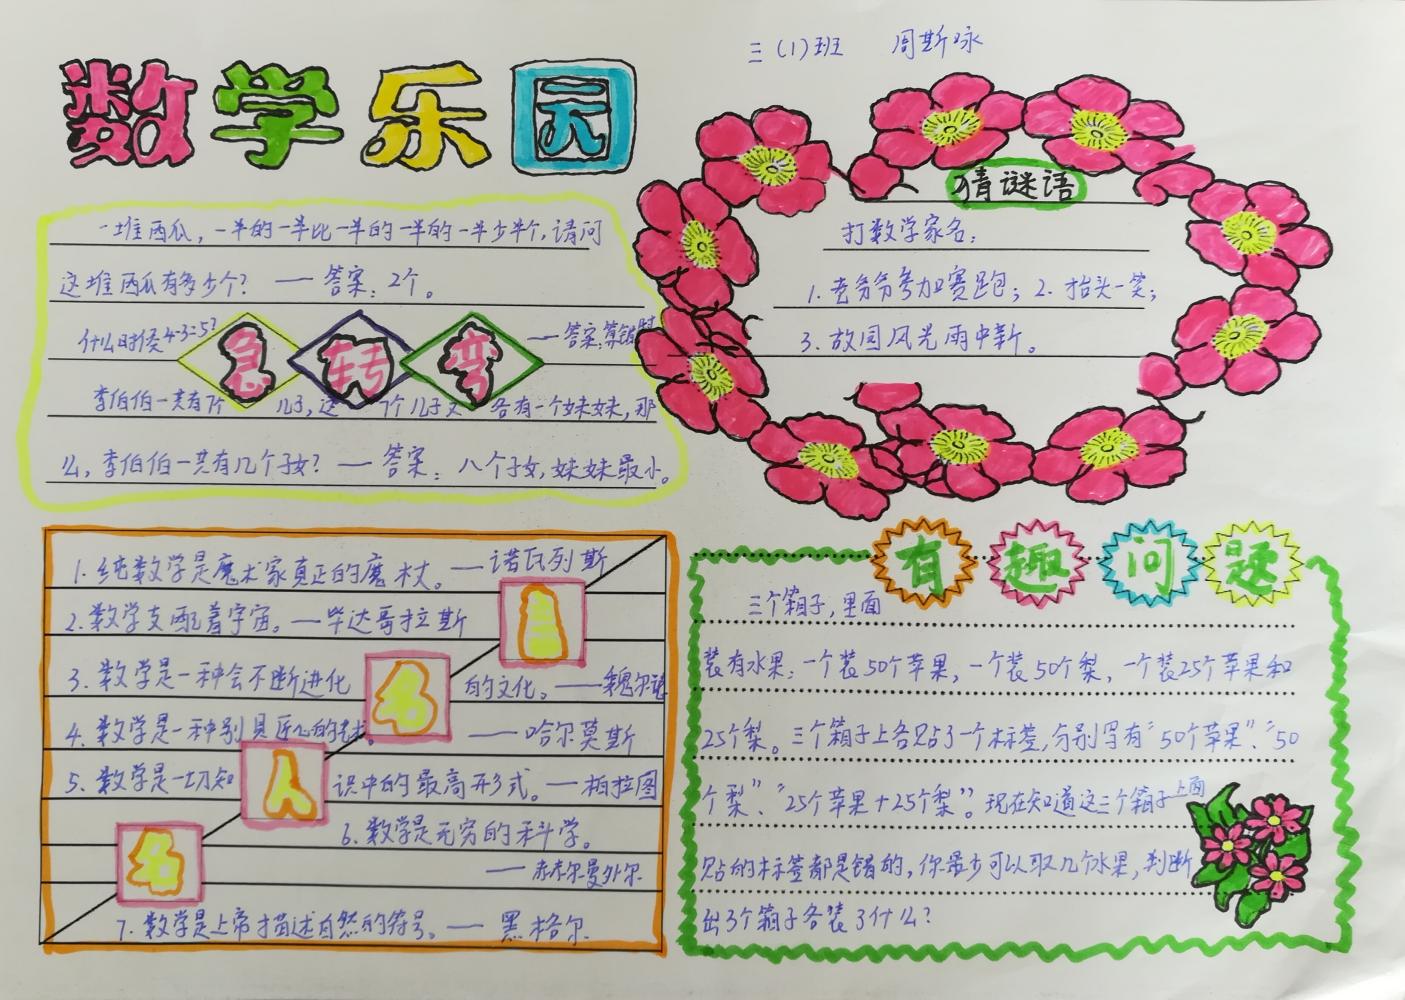 三(1)班 周斯咏
数学乐园
一堆西瓜，一半的一半比一半的一半的一半少半个，请问
这堆西瓜有多少个？—答案：2个。
什么时候4-3=5？ —答案：算错时
急转弯
李伯伯一共有7个儿子，这7个儿子又各有一个妹妹，那
么，李伯伯一共有几个子女？—答案：八个子女，妹妹最小。
猜谜语
打数学家名：
1.老爷爷参加赛跑；2.抬头一笑；
3.故园风光雨中新。
名人名言
1.纯数学是魔术家真正的魔杖。—诺瓦列斯
2.数学支配着宇宙。—毕达哥拉斯
3.数学是一种会不断进化的文化。—魏尔德
4.数学是一种别具匠心的艺术。—哈尔莫斯
5.数学是一切知识中的最高形式。—柏拉图
6.数学是无穷的科学。
—赫尔曼外尔
7.数学是上帝描述自然的符号。—黑格尔
有趣问题
三个箱子，里面
装有水果：一个装50个苹果，一个装50个梨，一个装25个苹果和
25个梨。三个箱子上各贴了一个标签，分别写有“50个苹果”、“50
个梨”、“25个苹果+25个梨”。现在知道这三个箱子上面
贴的标签都是错的，你最少可以取几个水果，判断
出3个箱子各装了什么？